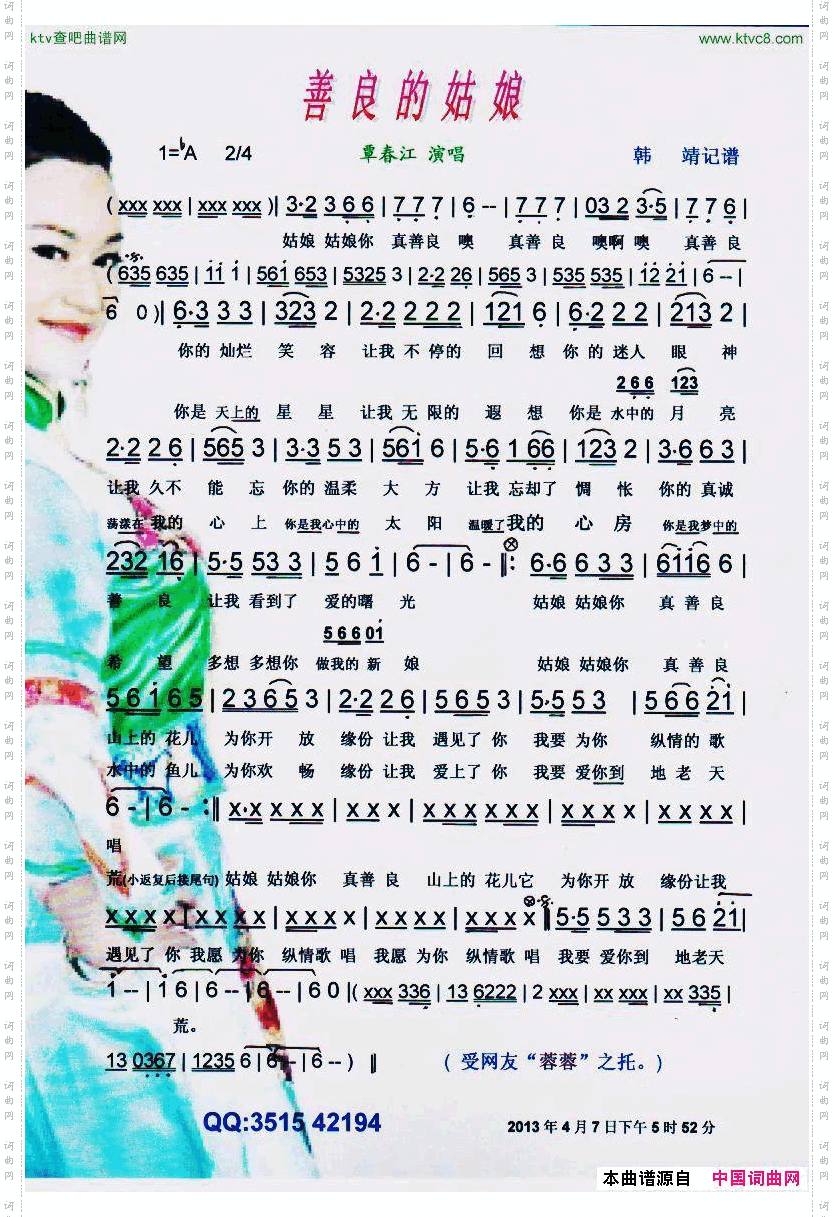 ktv查吧曲谱网 www.ktvc8.com
善良的姑娘
1=♭A 2/4 覃春江 演唱 韩 靖记谱
( xxx xxx | xxx xxx )| 3·2 3 6 6 | 7 7 7 | 6 - - | 7 7 7 | 03 2 3·5 | 7 7 6 |
姑娘 姑娘你 真善良 噢 真善 良 噢啊 噢 真善 良
( 635 635 | 11 1 | 561 653 | 5325 3 | 2·2 26 | 565 3 | 535 535 | 12 21 | 6 -- |
6 0 )| 6·3 3 3 | 323 2 | 2·2 2 2 2 | 121 6 | 6·2 2 2 | 213 2 |
你的 灿烂 笑 容 让我 不 停的 回 想 你 的 迷人 眼 神
2 6 6 123
你是 天上的 星 星 让我 无 限的 遐 想 你是 水中的 月 亮
2·2 2 6 | 565 3 | 3·3 5 3 | 561 6 | 5·6 1 66 | 123 2 | 3·6 6 3 |
让我 久不 能 忘 你的 温柔 大 方 让我 忘却了 惆 怅 你的 真诚
荡漾在 我的 心 上 你是我心中的 太 阳 温暖了我的 心 房 你是我梦中的
232 16 | 5·5 53 3 | 5 6 1 | 6 - | 6 - :‖: 6·6 6 3 3 | 6116 6 |
善 良 让我 看到了 爱的 曙 光 姑娘 姑娘你 真 善 良
5 6 6 01
希 望 多想 多想你 做我的 新 娘 姑娘 姑娘你 真 善 良
5 6 1 6 5 | 2 3 6 5 3 | 2·2 2 6 | 5 6 5 3 | 5·5 5 3 | 5 6 6 21 |
山上的 花儿 为你开 放 缘份 让我 遇见了 你 我要 为你 纵情的 歌
水中的 鱼儿 为你欢 畅 缘份 让我 爱上了 你 我要 爱你到 地 老 天
6 - | 6 - :‖ x·x x x x | x x x x | x x x x x x | x x x x x | x x x x |
唱
荒(小返复后接尾句) 姑娘 姑娘你 真善 良 山上的 花儿它 为你开 放 缘份让我
x x x x | x x x x | x x x x x | x x x x | x x x x ‖ 5·5 5 3 3 | 5 6 21 |
遇见了 你 我愿 为你 纵情歌 唱 我愿 为你 纵情歌 唱 我要 爱你到 地老天
1 -- | 1 6 | 6 -- | 6 -- | 6 0 |( xxx 336 | 13 6222 | 2 xxx | xx xxx | xx 335 |
荒。
13 0367 | 1235 6 | 6 -- | 6 -- ) ‖ ( 受网友“蓉蓉”之托。)
QQ:3515 42194 2013 年 4 月 7 日下午 5 时 52 分
本曲谱源自 中国词曲网